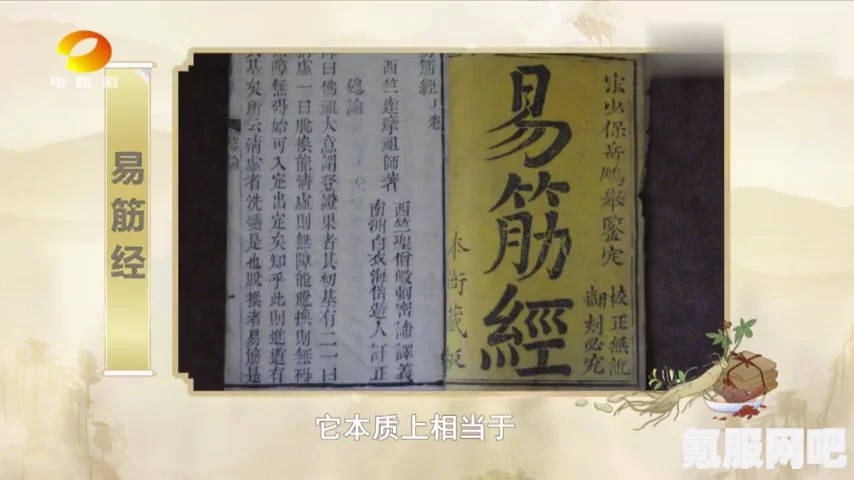 电视剧
易筋经
宋少保岳鵬舉鑒定
校正無訛
翻刻必究
易筋經
本衙藏板
筋經上卷
西竺達摩祖師著
西竺聖僧般剌密諦譯義
南洲白衣海岱遊人訂正
總論
曰佛祖大意謂登證果者其初基有二一曰
清虛一曰脫換能清虛則無障能脫換則無碍
障無碍始可入定出定矣知乎此則進道有
其基矣所云清虛者洗髓是也脫換者易筋是
總論
它本质上相当于
氪服网吧